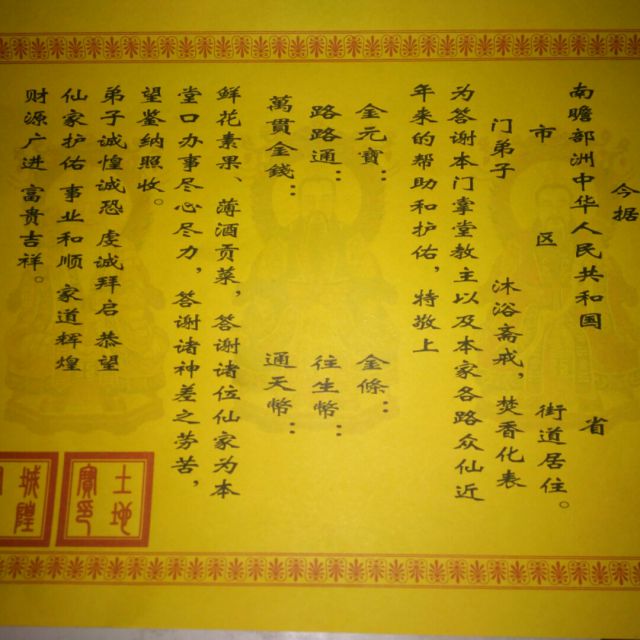 今据
南瞻部洲中华人民共和国 省
市 区 街道居住。
门弟子 沐浴斋戒，焚香化表
为答谢本门掌堂教主以及本家各路众仙近
年来的帮助和护佑，特敬上
金元寶： 金條：
路路通： 往生幣：
萬貫金錢： 通天幣：
鲜花素果、薄酒贡菜，答谢诸位仙家为本
堂口办事尽心尽力，答谢诸神差之劳苦，
望鉴纳照收。
弟子诚惶诚恐 虔诚拜启 恭望
仙家护佑 事业和顺 家道辉煌
财源广进 富贵吉祥。
土地
寳印
城隍